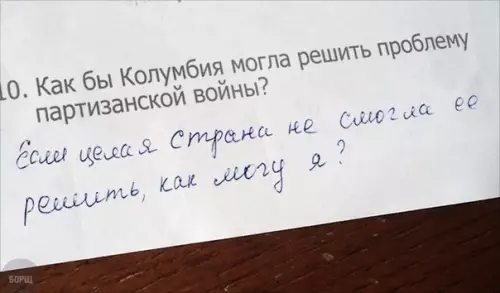 10. Как бы Колумбия могла решить проблему
партизанской войны?
Если целая страна не смогла ее
решить, как могу я?
БОРЩ